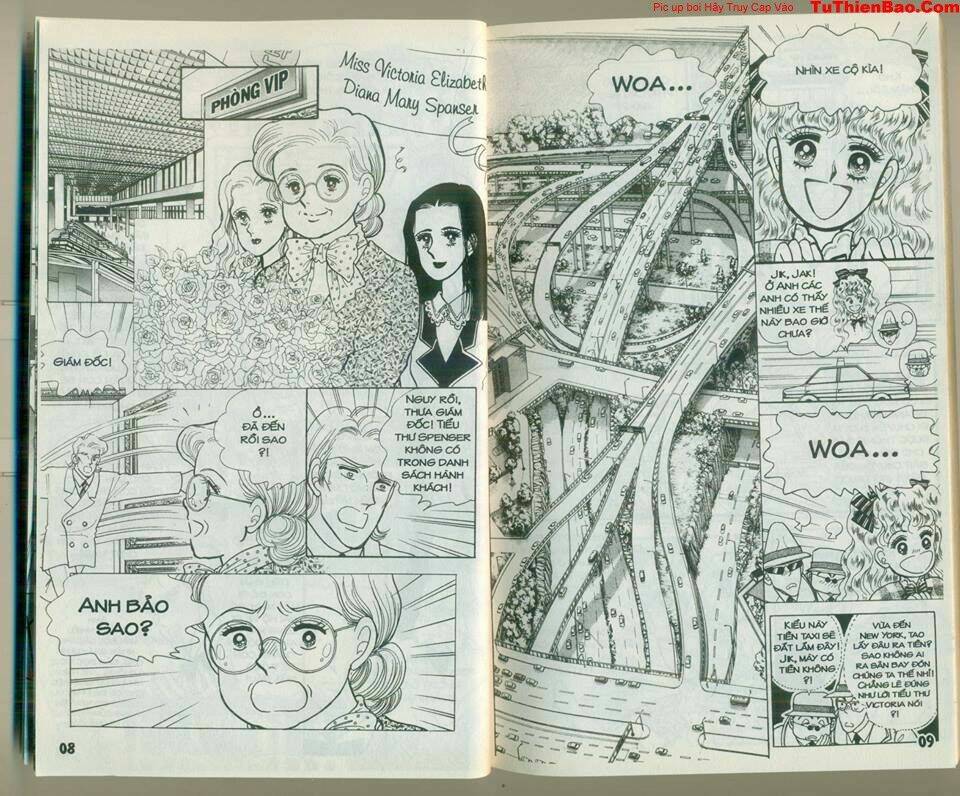 Pic up boi Hãy Truy Cap Vào
TuThienBao.Com
PHÒNG VIP
Miss Victoria Elizabeth
Diana Mary Spanser
GIÁM ĐỐC!
Ồ...
ĐÃ ĐẾN
RỒI SAO
?!
NGUY RỒI,
THƯA GIÁM
ĐỐC! TIỂU
THƯ SPENSER
KHÔNG CÓ
TRONG DANH
SÁCH HÀNH
KHÁCH!
ANH BẢO
SAO?
08
WOA...
NHÌN XE CỘ KÌA!
JIK, JAK!
Ở ANH CÁC
ANH CÓ THẤY
NHIỀU XE THẾ
NÀY BAO GIỜ
CHƯA?
WOA...
KIỂU NÀY
TIỀN TAXI SẼ
ĐẮT LẮM ĐÂY!
JIK, MÀY CÓ
TIỀN KHÔNG
?!
VỪA ĐẾN
NEW YORK, TAO
LẤY ĐÂU RA TIỀN?
SAO KHÔNG AI
RA SÂN BAY ĐÓN
CHÚNG TA THẾ NHỈ!
CHẲNG LẼ ĐÚNG
NHƯ LỜI TIỂU THƯ
VICTORIA NÓI
?!
09